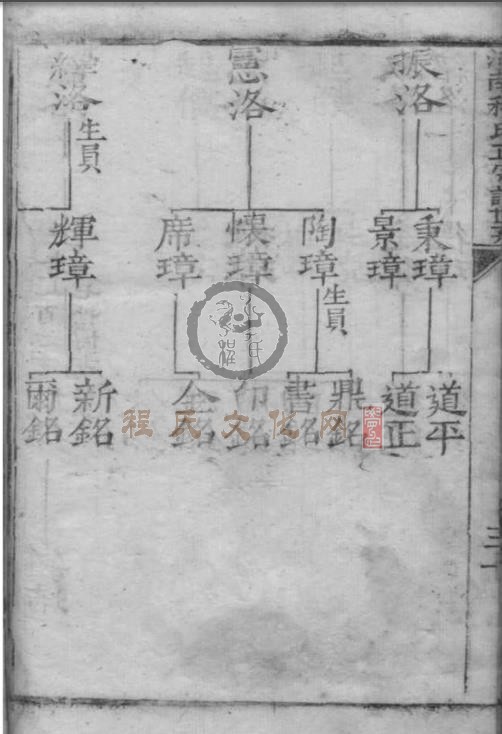 振洛
秉璋
景璋
道平
道正
憲洛
陶璋
生員
懷璋
席璋
鼎銘
書銘
金銘
洛
生員
輝璋
新銘
爾銘
程氏文化网
三十